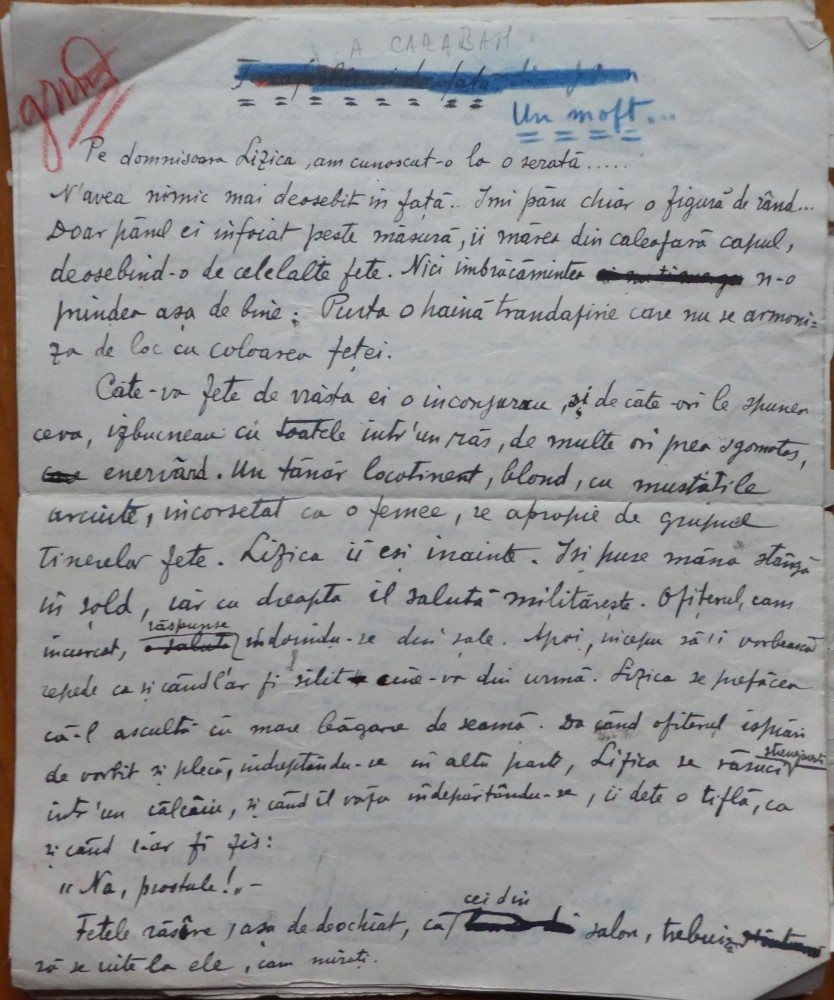 A CARABAH
Un moft...
Pe domnisoara Lizica, am cunoscut-o la o serată.....
N'avea nimic mai deosebit in față... Imi păru chiar o figură de rând...
Doar părul ei infoiat peste măsură, ii mărea din caleafară capul,
deosebind-o de celelalte fete. Nici imbrăcămintea n-o
prindea așa de bine: Purta o haină trandafirie care nu se armoni=
za de loc cu coloarea feței.
Câte-va fete de vrâsta ei o inconjurau, și de câte-ori le spunea
ceva, izbucneau cu toatele intr'un râs, de multe ori prea sgomotos,
enervând. Un tânăr locotinent, blond, cu mustățile
arcuite, incorsetat ca o femee, se apropie de grupul
tinerelor fete. Lizica ii eși inainte. Iși puse mâna stângă
in șold, iar cu dreapta il salută militărește. Ofițerul, cam
incurcat, răspunse indoindu-se din șale. Apoi, incepu să-i vorbească
repede ca și când l'ar fi silit cine-va din urmă. Lizica se prefăcea
că-l ascultă cu mare băgare de seamă. Da când ofițerul isprăvi
de vorbit și plecă, indreptându-se in altă parte, Lizica se răsuci ștrengărește
intr'un călcâiu, și când il văzu indepărtându-se, ii dete o tiflă, ca
și când i-ar fi zis:
"Na, prostule!" -
Fetele râseră, așa de deochiat, că cei din salon, trebuiră
să se uite la ele, cam mirați.